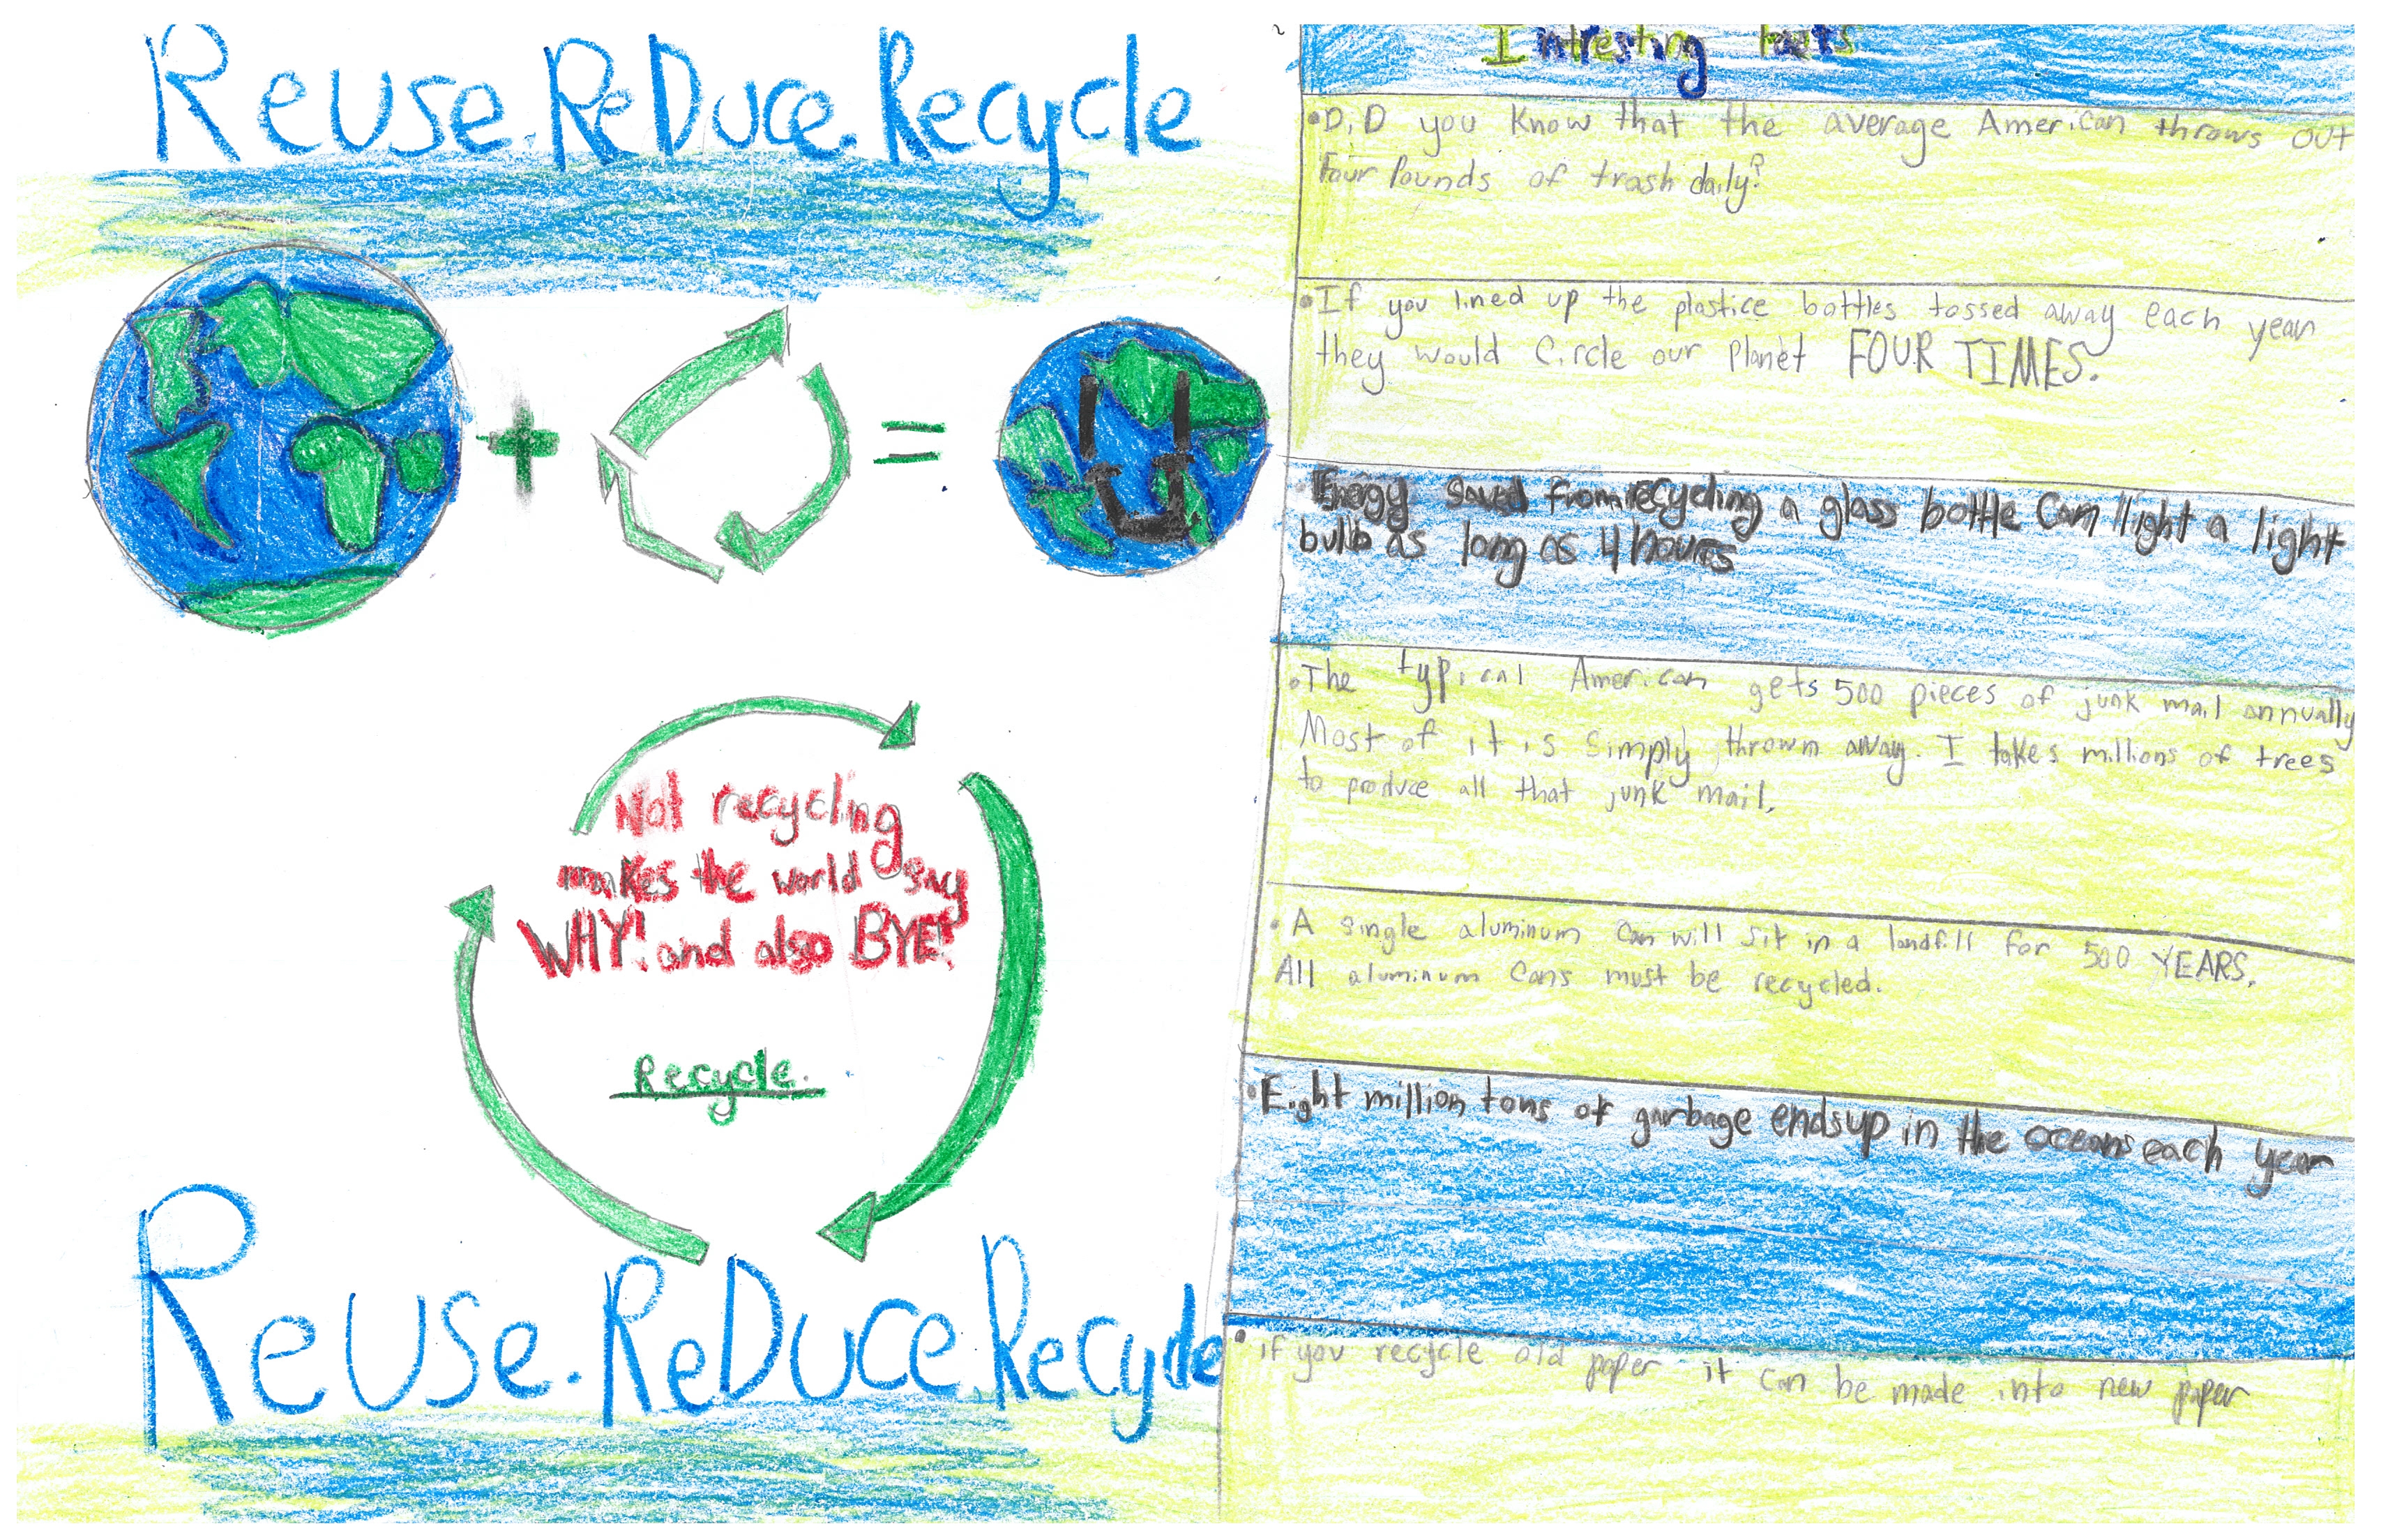 Reuse.ReDuce.Recycle
Not recycling
makes the world say
WHY! and also BYE!
Recycle.
Reuse.ReDuce.Recycle
Intresting facts
•DiD you Know that the average American throws out
Four Pounds of trash daily?
•If you lined up the plastice bottles tossed away each year
they would Circle our Planet FOUR TIMES.
Energy saved from recycling a glass bottle Can light a light
bulb as long as 4 hours
•The typical American gets 500 pieces of junk mail annually
Most of it is simply thrown away. I takes millions of trees
to produce all that junk mail.
•A single aluminum can will sit in a landfill for 500 YEARS.
All aluminum Cans must be recycled.
•Eight million tons of garbage ends up in the oceans each year
•if you recycle old paper it can be made into new paper